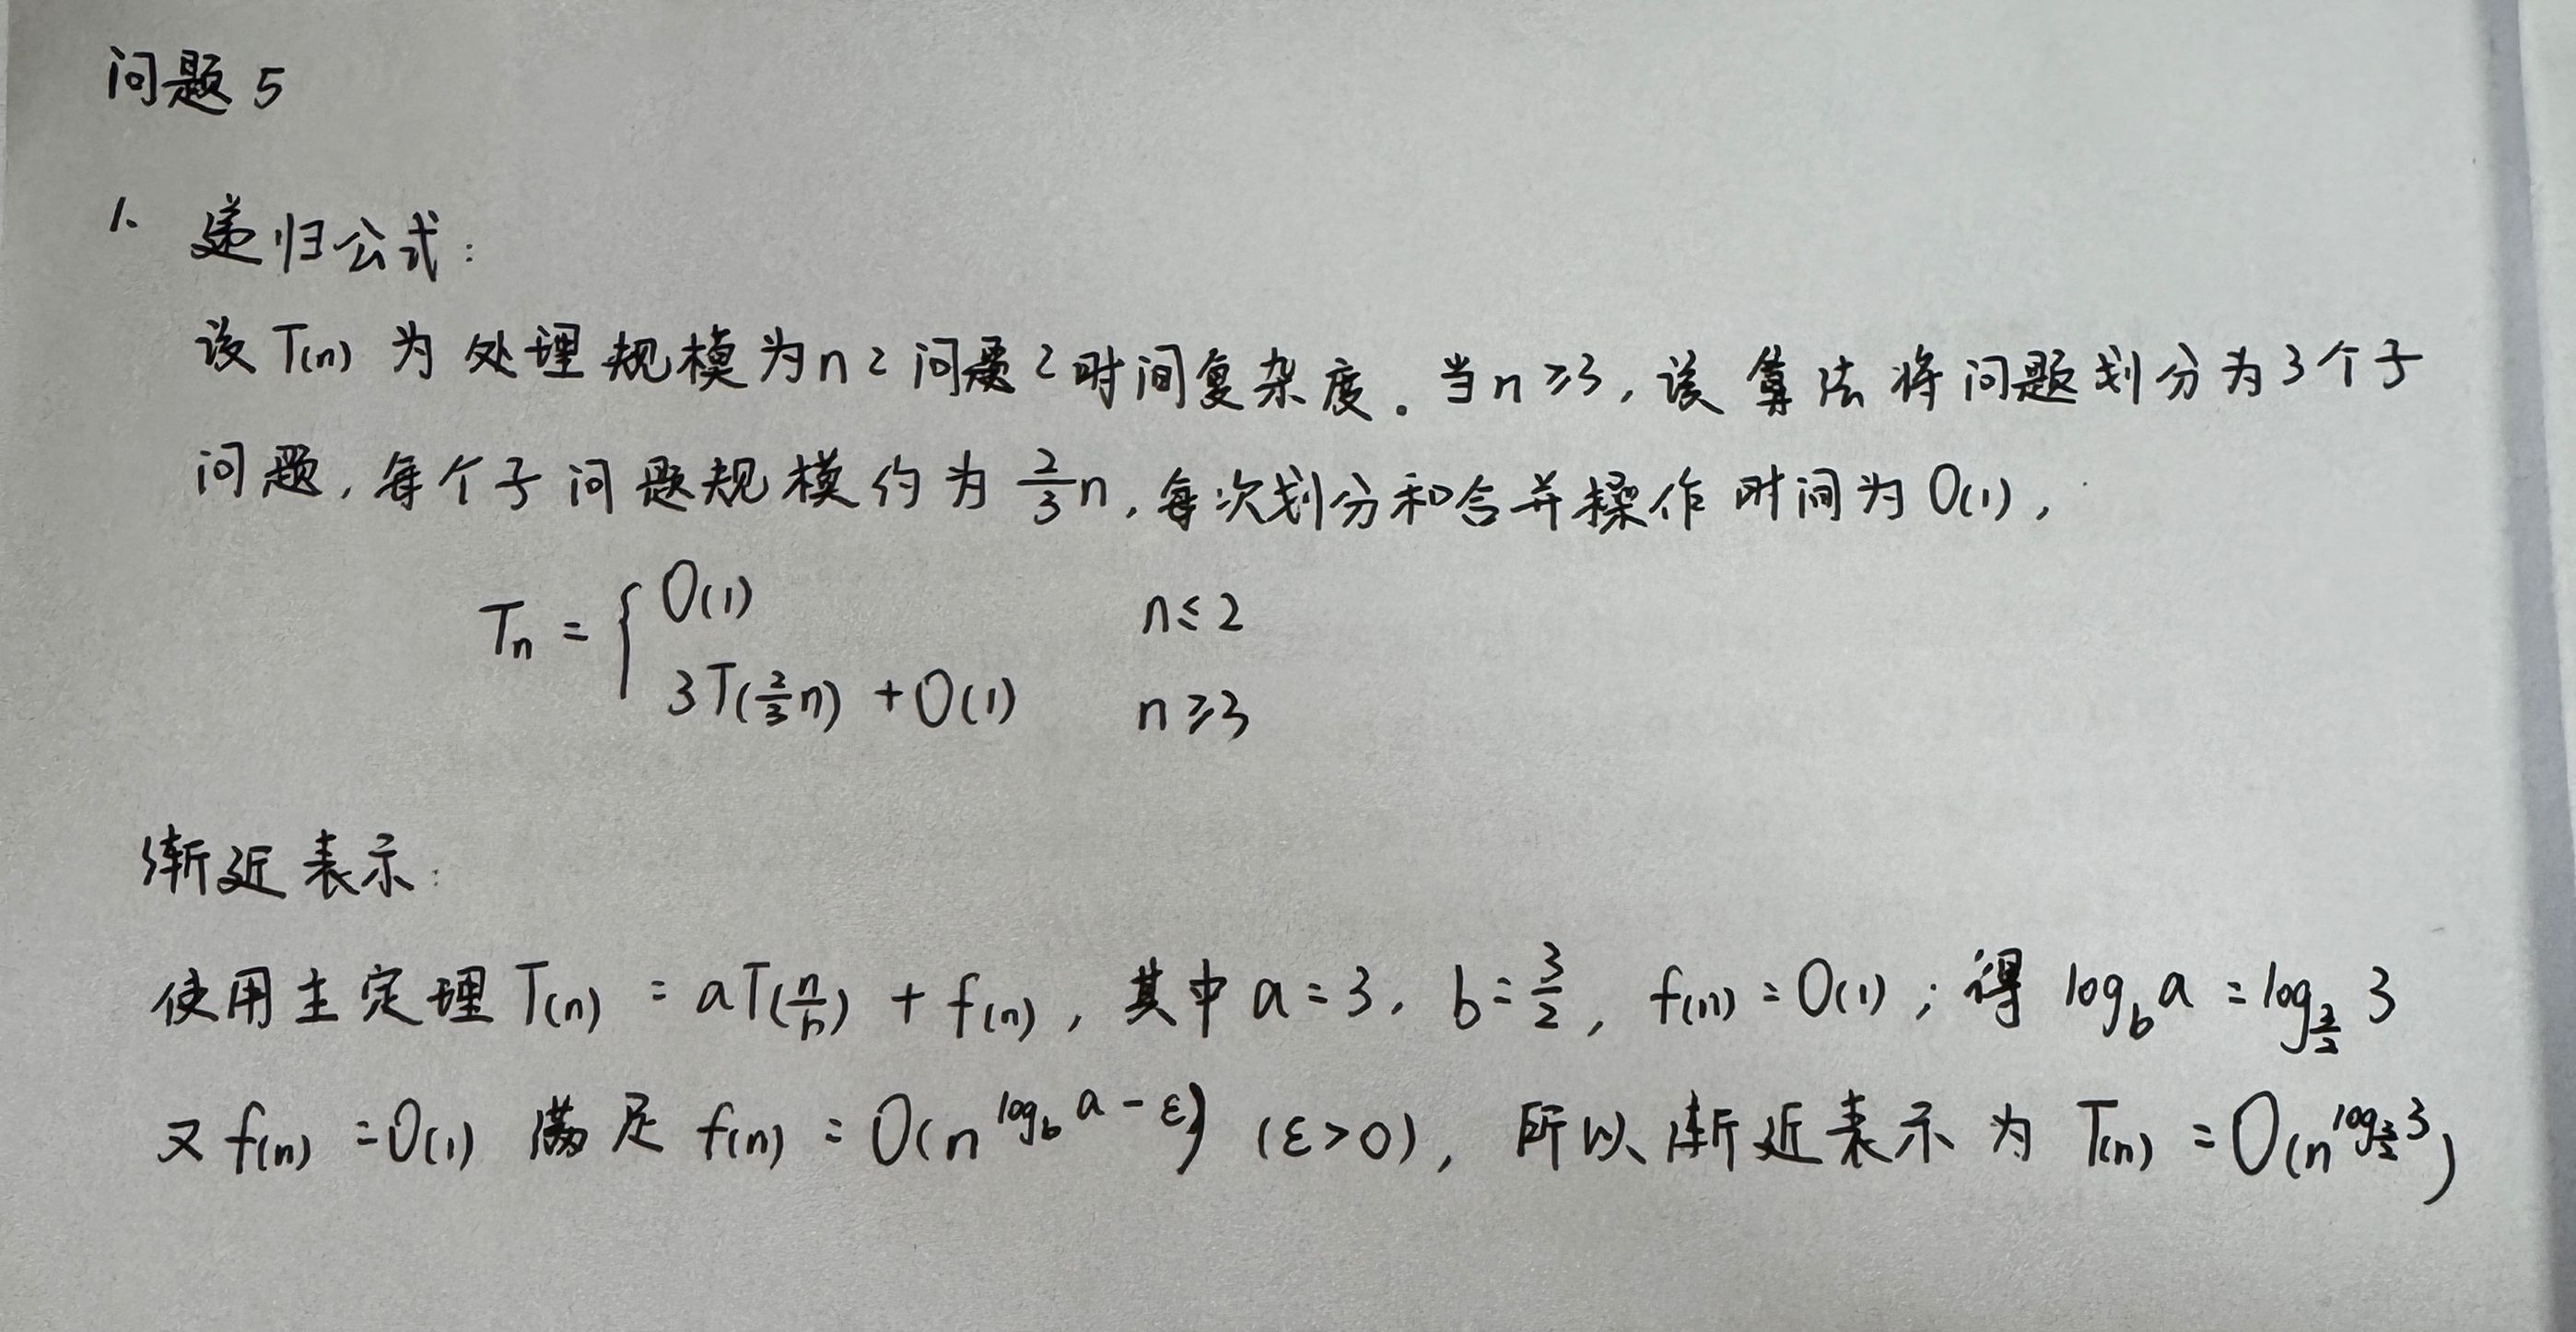 问题 5
1. 递归公式:
设 T(n) 为处理规模为n之问题之时间复杂度。当n≥3,该算法将问题划分为3个子
问题,每个子问题规模约为 2/3 n,每次划分和合并操作时间为O(1),
Tn = { O(1) n≤2
3T(2/3 n) + O(1) n≥3
渐近表示:
使用主定理 T(n) = aT(n/b) + f(n), 其中 a=3, b=3/2, f(n)=O(1); 得 log_b a = log_{3/2} 3
又 f(n) = O(1) 满足 f(n) = O(n^{log_b a - ε}) (ε>0), 所以渐近表示为 T(n) = O(n^{log_{3/2} 3})